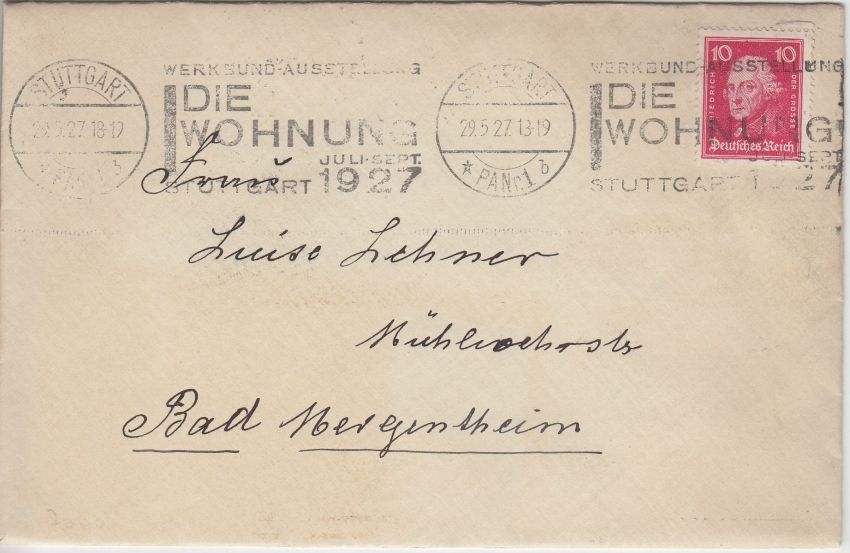 STUTTGART
29.5.27.18-19
WERKBUND-AUSSTELLUNG
DIE
WOHNUNG
JULI-SEPT.
STUTTGART 1927
STUTTGART
29.5.27.18-19
* PANr.1 δ
WERKBUND-AUSSTELLUNG
DIE
WOHNUNG
JULI-SEPT.
STUTTGART 1927
10 10
FRIEDRICH DER GROSSE
Deutsches Reich
Frau
Luise Lehner
Bad Mergentheim